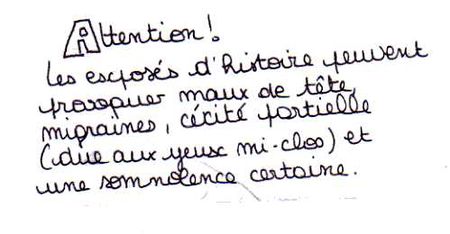 Attention!
Les exposés d'histoire peuvent
provoquer maux de tête,
migraines, cécité partielle
(due aux yeux mi-clos) et
une somnolence certaine.